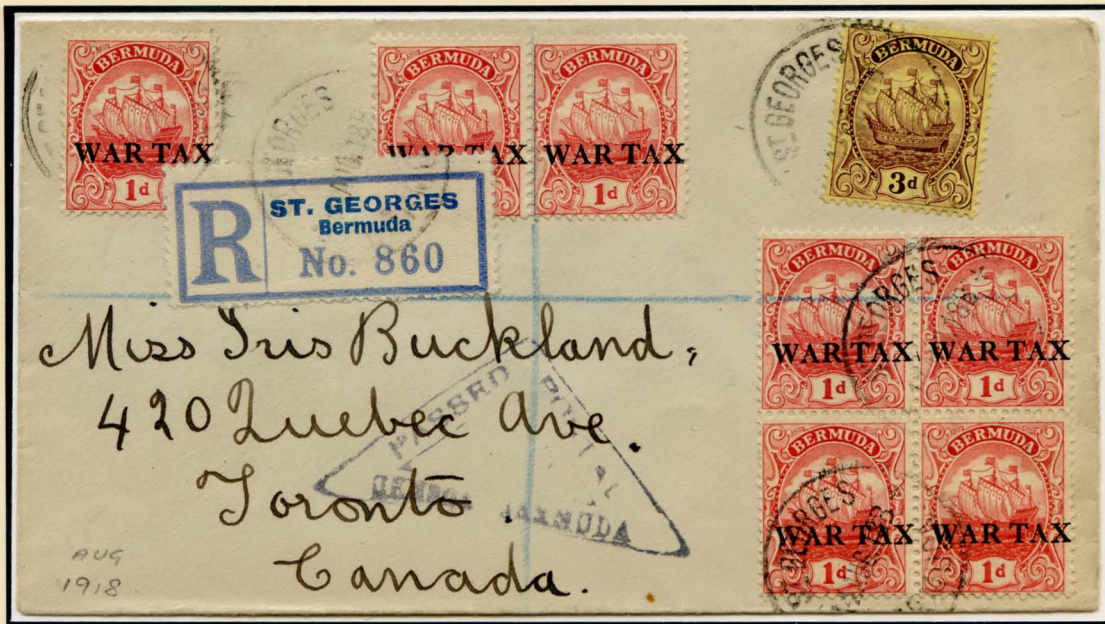 BERMUDA
WAR TAX
1d
BERMUDA
WAR TAX
BERMUDA
WAR TAX
1d
ST. GEORGES
BERMUDA
3d
GEORGES
R
ST. GEORGES
Bermuda
No. 860
BERMUDA
WAR TAX
1d
BERMUDA
WAR TAX
1d
GEORGES
BERMUDA
WAR TAX
1d
BERMUDA
WAR TAX
1d
GEORGES
Miss Iris Buckland,
420 Quebec Ave.
Toronto.
Canada.
PASSED
BERMUDA
AUG
1918